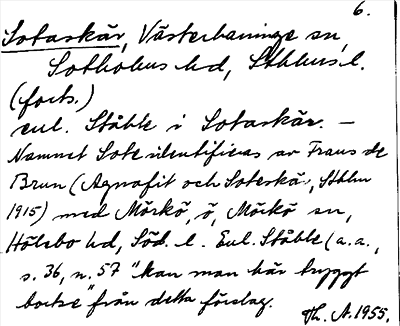 6.
Sotaskär, Västerhaninge sn,
Sotholms hd, Sthlms l.
(forts.)
enl. Ståhle i Sotaskär. —
Namnet Sote identifieras av Frans de
Brun (Agnafit och Soteskär, Sthlm
1915) med Mörkö, ö, Mörkö sn,
Hölebo hd, Söd. l. Enl. Ståhle (a.a.,
s. 36, n. 57 "kan man här tryggt
bortse" från detta förslag.
Th. A. 1955.